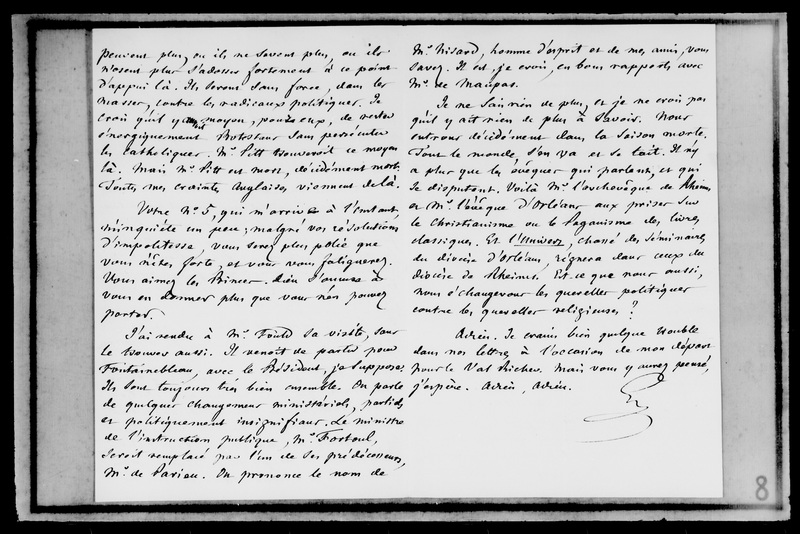 peuvent plus, ou ils ne savent plus, ou ils
n'osent plus s'adosser fortement à ce point
d'appui là. Ils seront sans force, dans les
masses, contre les radicaux politiques. Je
crois qu'il y a un moyen, pour eux, de rester
énergiquement Protestans sans persécuter
les catholiques. Mr. Pitt trouveroit ce moyen
là. Mais Mr. Pitt est mort, décidément mort.
Toutes mes craintes Anglaises viennent de là.
Votre No. 5, qui m'arrive à l'instant,
m'inquiète un peu; malgré vos résolutions
d'impolitesse, vous serez plus polie que
vous n'êtes forte, et vous vous fatiguerez.
Vous aimez les Princes. Dieu s'amuse à
vous en donner plus que vous n'en pouvez
porter.
J'ai rendu à Mr. Fould sa visite, sans
le trouver aussi. Il venoit de partir pour
Fontainebleau, avec le Président, je suppose.
Ils sont toujours très bien ensemble. On parle
de quelques changemens ministériels, partiels
et politiquement insignifians. Le ministre
de l'instruction publique, Mr. Fortoul,
seroit remplacé par l'un de ses prédécesseurs,
Mr. de Parieu. On prononce le nom de
Mr. Nisard, homme d'esprit et de mes amis, vous
savez. Il est, je crois, en bons rapports avec
Mr. de Maupas.
Je ne sais rien de plus, et je ne crois pas
qu'il y ait rien de plus à savoir. Nous
entrons décidément dans la saison morte.
Tout le monde s'en va et se tait. Il n'y
a plus que les évêques qui parlent, et qui
se disputent. Voilà Mr. l'archevêque de Rheims
et Mr. l'évêque d'Orléans aux prises sur
le Christianisme ou le Paganisme des livres
classiques. Et l'Univers, chassé des séminaires
du diocèse d'Orléans, règnera dans ceux du
diocèse de Rheims. Est-ce que nous aussi,
nous échangerons les querelles politiques
contre les querelles religieuses ?
Adieu. Je crains bien quelque trouble
dans nos lettres à l'occasion de mon départ
pour le Val Richer. Mais vous y aurez pensé,
j'espère. Adieu, Adieu.
8